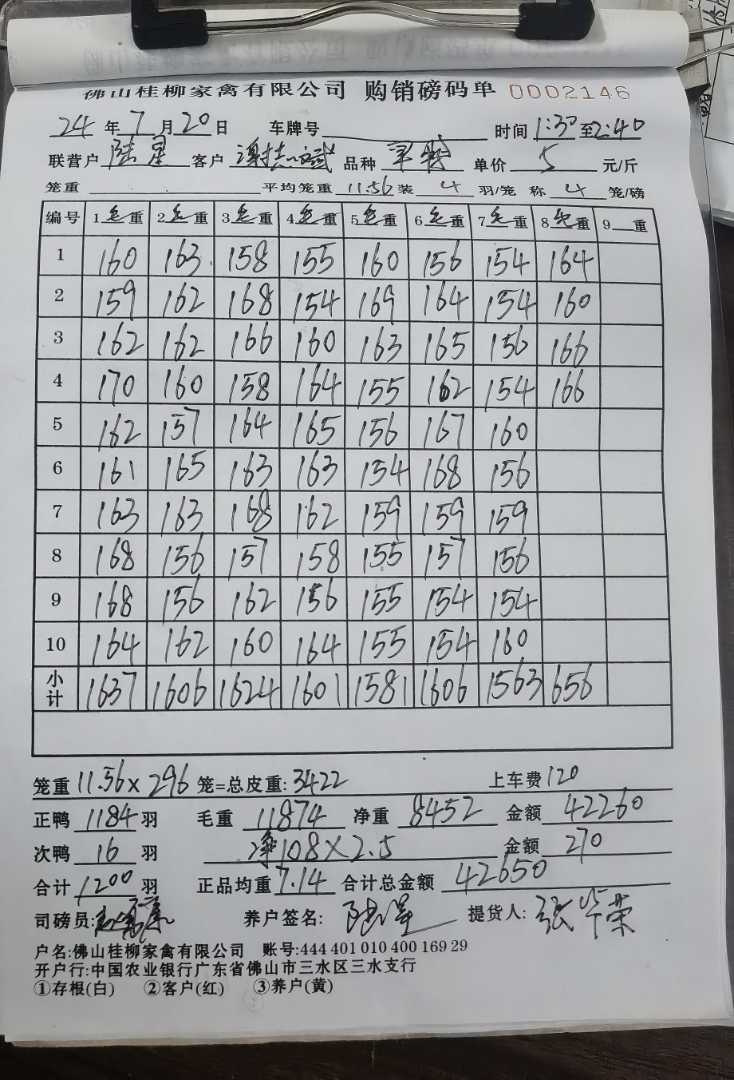 佛山桂柳家禽有限公司 购销磅码单 0002146
24年7月20日 车牌号 时间1:30至2:40
联营户 陆星 客户 品种 单价 5 元/斤
笼重 平均笼重 11.56 装 4 羽/笼 称 4 笼/磅
编号 1毛重 2毛重 3毛重 4毛重 5毛重 6毛重 7毛重 8毛重 9重
1 160 163 158 155 160 156 154 164
2 159 162 168 154 169 164 154 160
3 162 162 166 160 163 165 156 166
4 170 160 158 164 155 162 154 166
5 162 157 164 165 156 167 160
6 161 165 163 163 154 168 156
7 163 163 168 162 159 159 159
8 168 156 157 158 155 157 156
9 168 156 162 156 155 154 154
10 164 162 160 164 155 154 160
小计 1637 1606 1624 1601 1581 1606 1563 656
笼重 11.56×296 笼=总皮重: 3422 上车费 120
正鸭 1184 羽 毛重 11874 净重 8452 金额 42260
次鸭 16 羽 净108×2.5 金额 270
合计 1200 羽 正品均重 7.14 合计总金额 42650
司磅员: 养户签名: 陆星 提货人: 张华荣
户名:佛山桂柳家禽有限公司 账号:444 401 010 400 169 29
开户行:中国农业银行广东省佛山市三水区三水支行
①存根(白) ②客户(红) ③养户(黄)